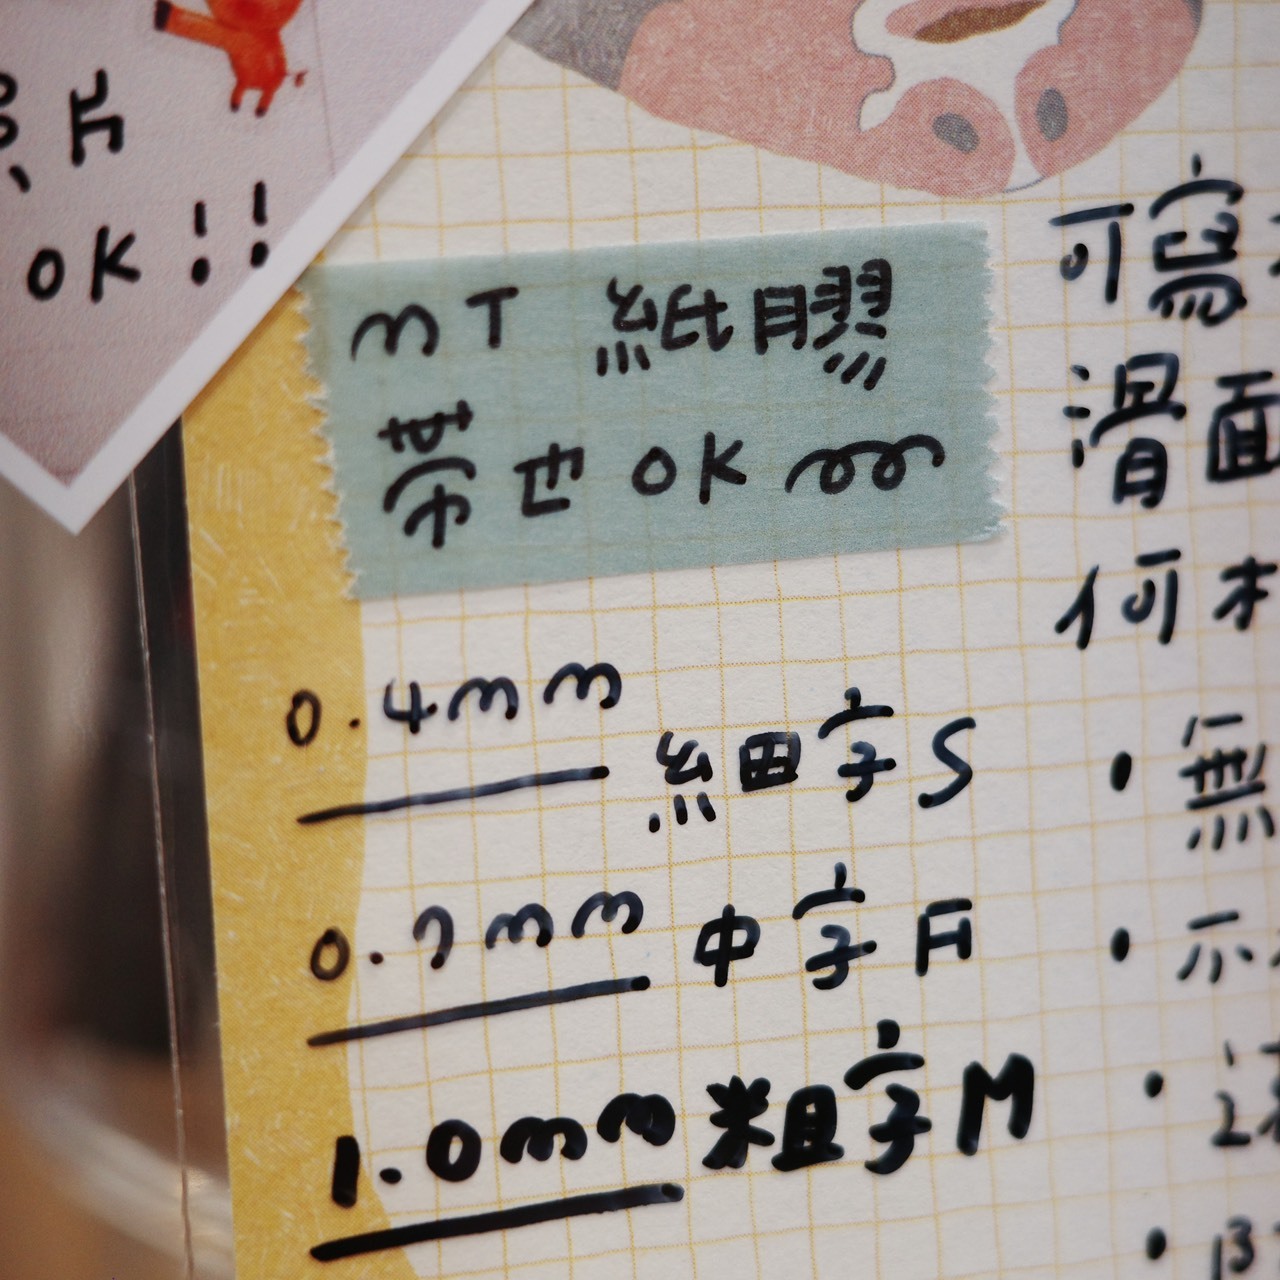 片
OK!!
MT 紙膠
帶也OK
0.4mm 細字S
0.7mm 中字F
1.0mm 粗字M
可寫
滑面
何
• 無
• 不